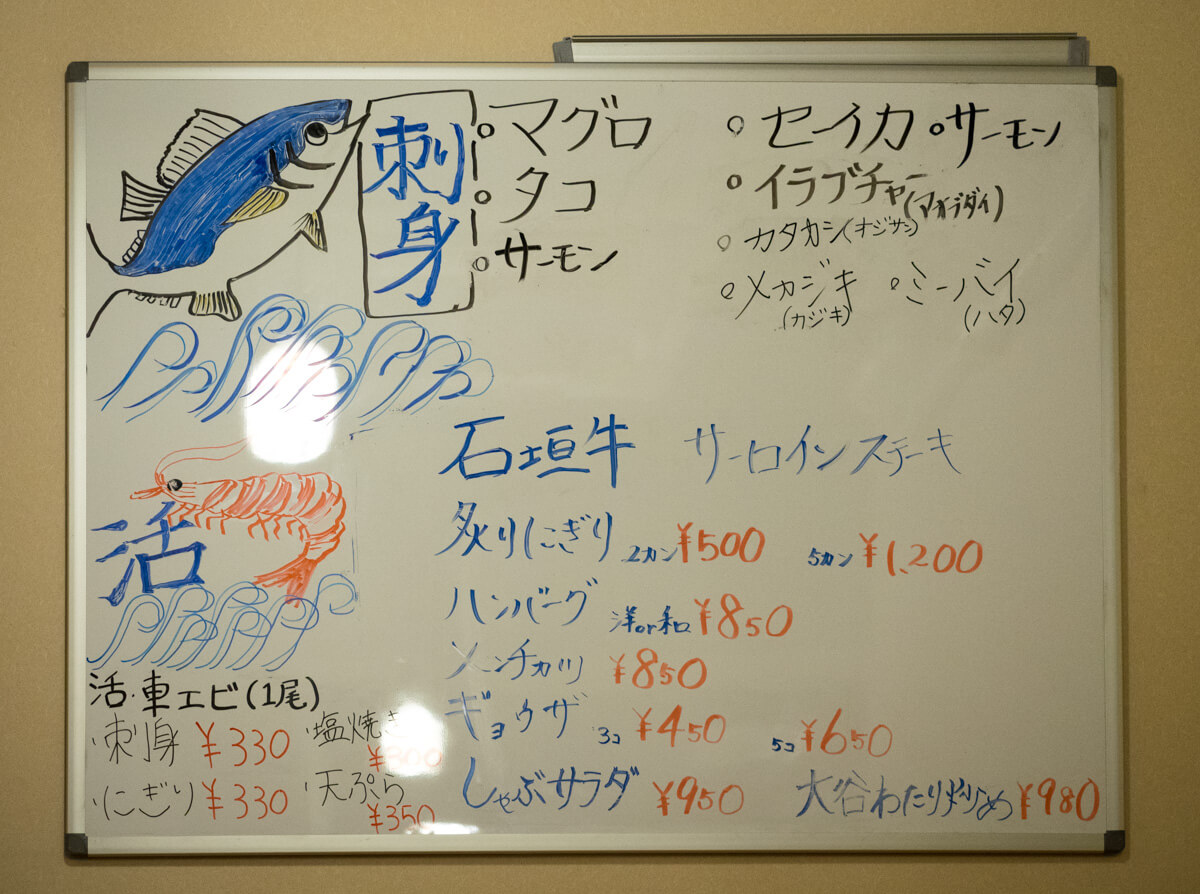 刺身
マグロ
タコ
サーモン
セイカ サーモン
イラブチャー
(アオブダイ)
カタカシ(オジサン)
メカジキ ミーバイ
(カジキ) (ハタ)
活
活・車エビ(1尾)
・刺身 ¥330 ・塩焼き
・にぎり ¥330 ・天ぷら
¥350
石垣牛 サーロインステーキ
炙りにぎり 2カン ¥500 5カン ¥1,200
ハンバーグ 洋or和 ¥850
メンチカツ ¥850
ギョウザ 3コ ¥450 5コ ¥650
しゃぶサラダ ¥950 大谷わたり炒め ¥980